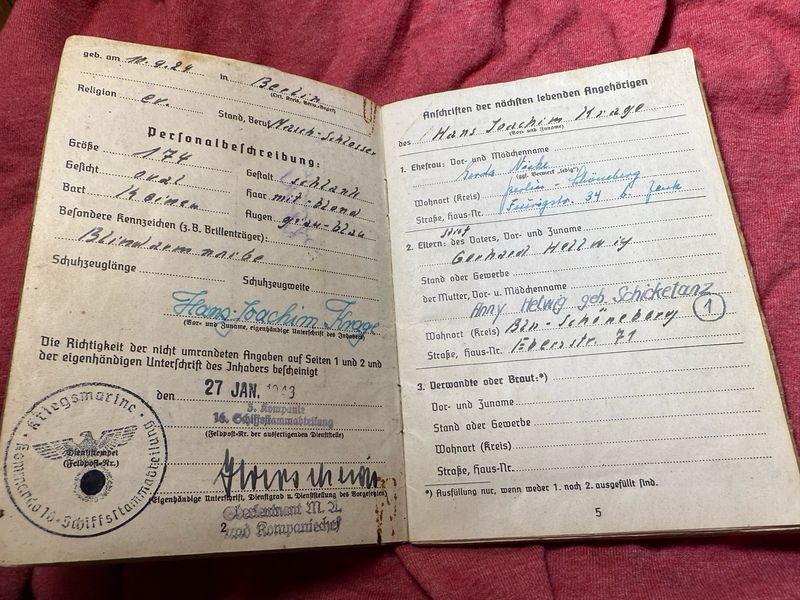 geb. am 10.9.24 in Berlin
(Ort, Kreis, Verw.-Bezirk)
Religion ev. Stand, Beruf Masch-Schlosser
Personalbeschreibung:
Größe 174 Gestalt schlank
Gesicht oval Haar mit-blond
Bart Keinen Augen grau-blau
Besondere Kennzeichen (z.B. Brillenträger):
Blinddarmnarbe
Schuhzeuglänge Schuhzeugweite
Hans-Joachim Krage
(Vor- und Zuname, eigenhändige Unterschrift des Inhabers)
Die Richtigkeit der nicht umrandeten Angaben auf Seiten 1 und 2 und
der eigenhändigen Unterschrift des Inhabers bescheinigt
den 27 JAN. 1943
5. Kompanie
16. Schiffsstammabteilung
(Feldpost-Nr. der ausfertigenden Dienststelle)
Kriegsmarine
Kommando 16. Schiffsstammabteilung
Dienststempel
(Feldpost-Nr.)
(Eigenhändige Unterschrift, Dienstgrad u. Dienststellung des Vorgesetzten)
Oberleutnant M. A.
und Kompaniechef
2
Anschriften der nächsten lebenden Angehörigen
des Hans Joachim Krage
(Vor- und Zuname)
1. Ehefrau: Vor- und Mädchenname
Gerda
(ggf. Vermerk „ledig")
Wohnort (Kreis) Berlin-Schöneberg
Straße, Haus-Nr. Feurigstr. 34 b.
2. Eltern: des Vaters, Vor- und Zuname
Gerhard Hellwig
Stand oder Gewerbe
der Mutter, Vor- u. Mädchenname
Anny Helwig geb. Schicketanz
Wohnort (Kreis) Bln-Schöneberg 1
Straße, Haus-Nr. Eberstr. 71
3. Verwandte oder Braut:*)
Vor- und Zuname
Stand oder Gewerbe
Wohnort (Kreis)
Straße, Haus-Nr.
*) Ausfüllung nur, wenn weder 1. noch 2. ausgefüllt sind.
5